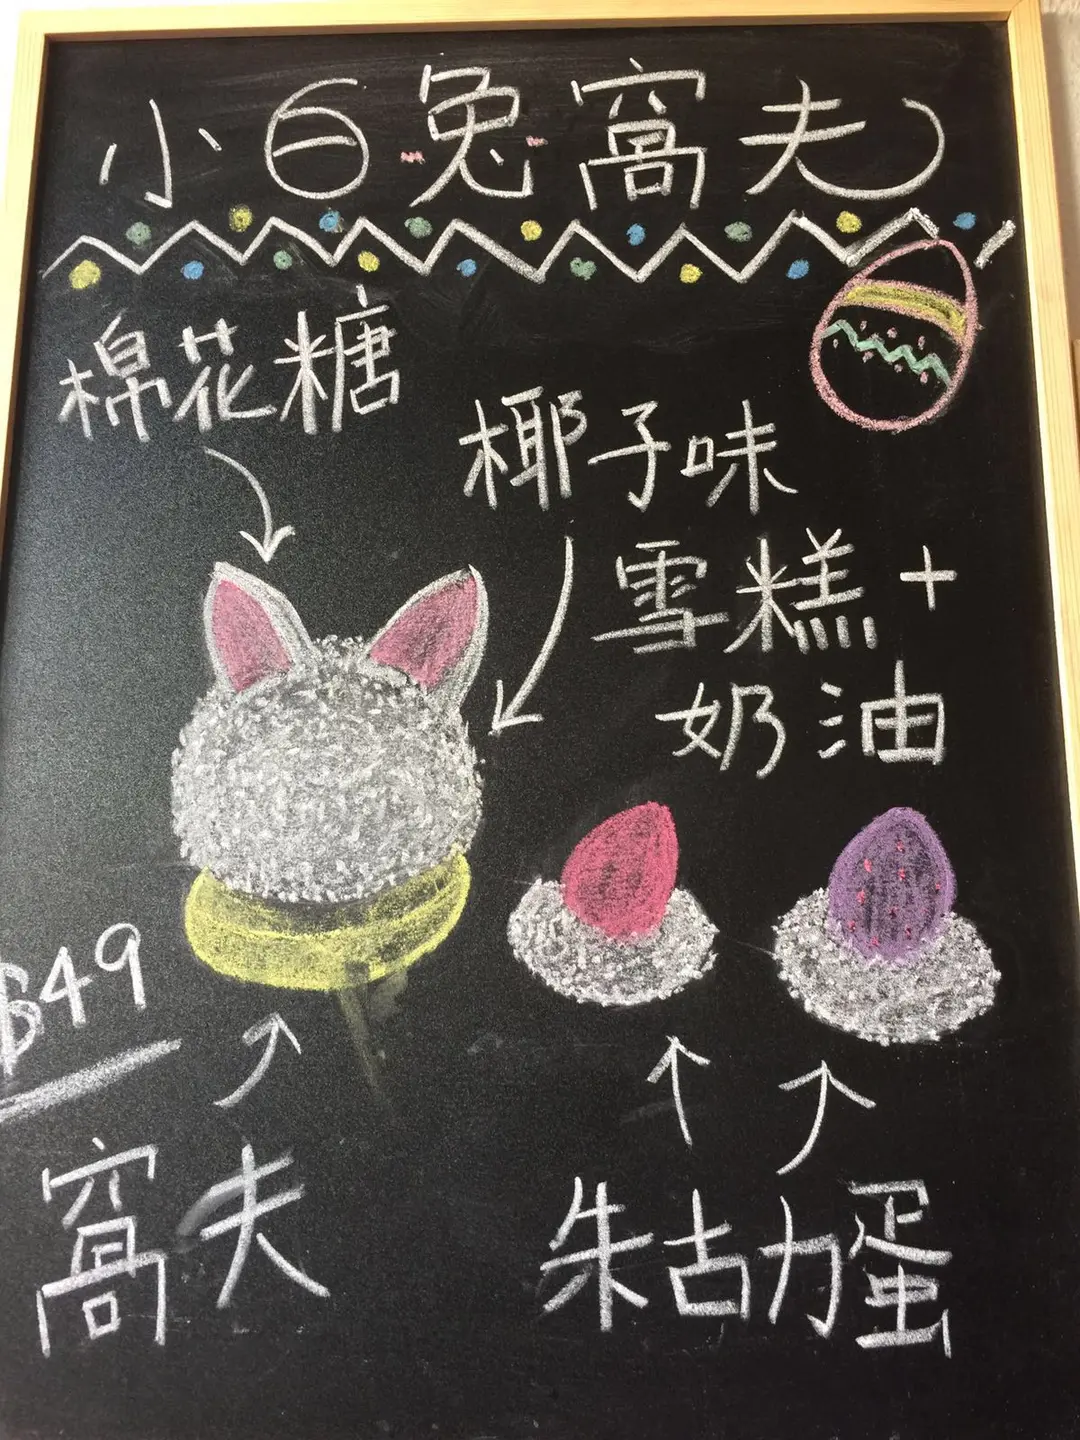 小白兔窩夫
棉花糖
椰子味
雪糕+
奶油
$49
窩夫
朱古力蛋